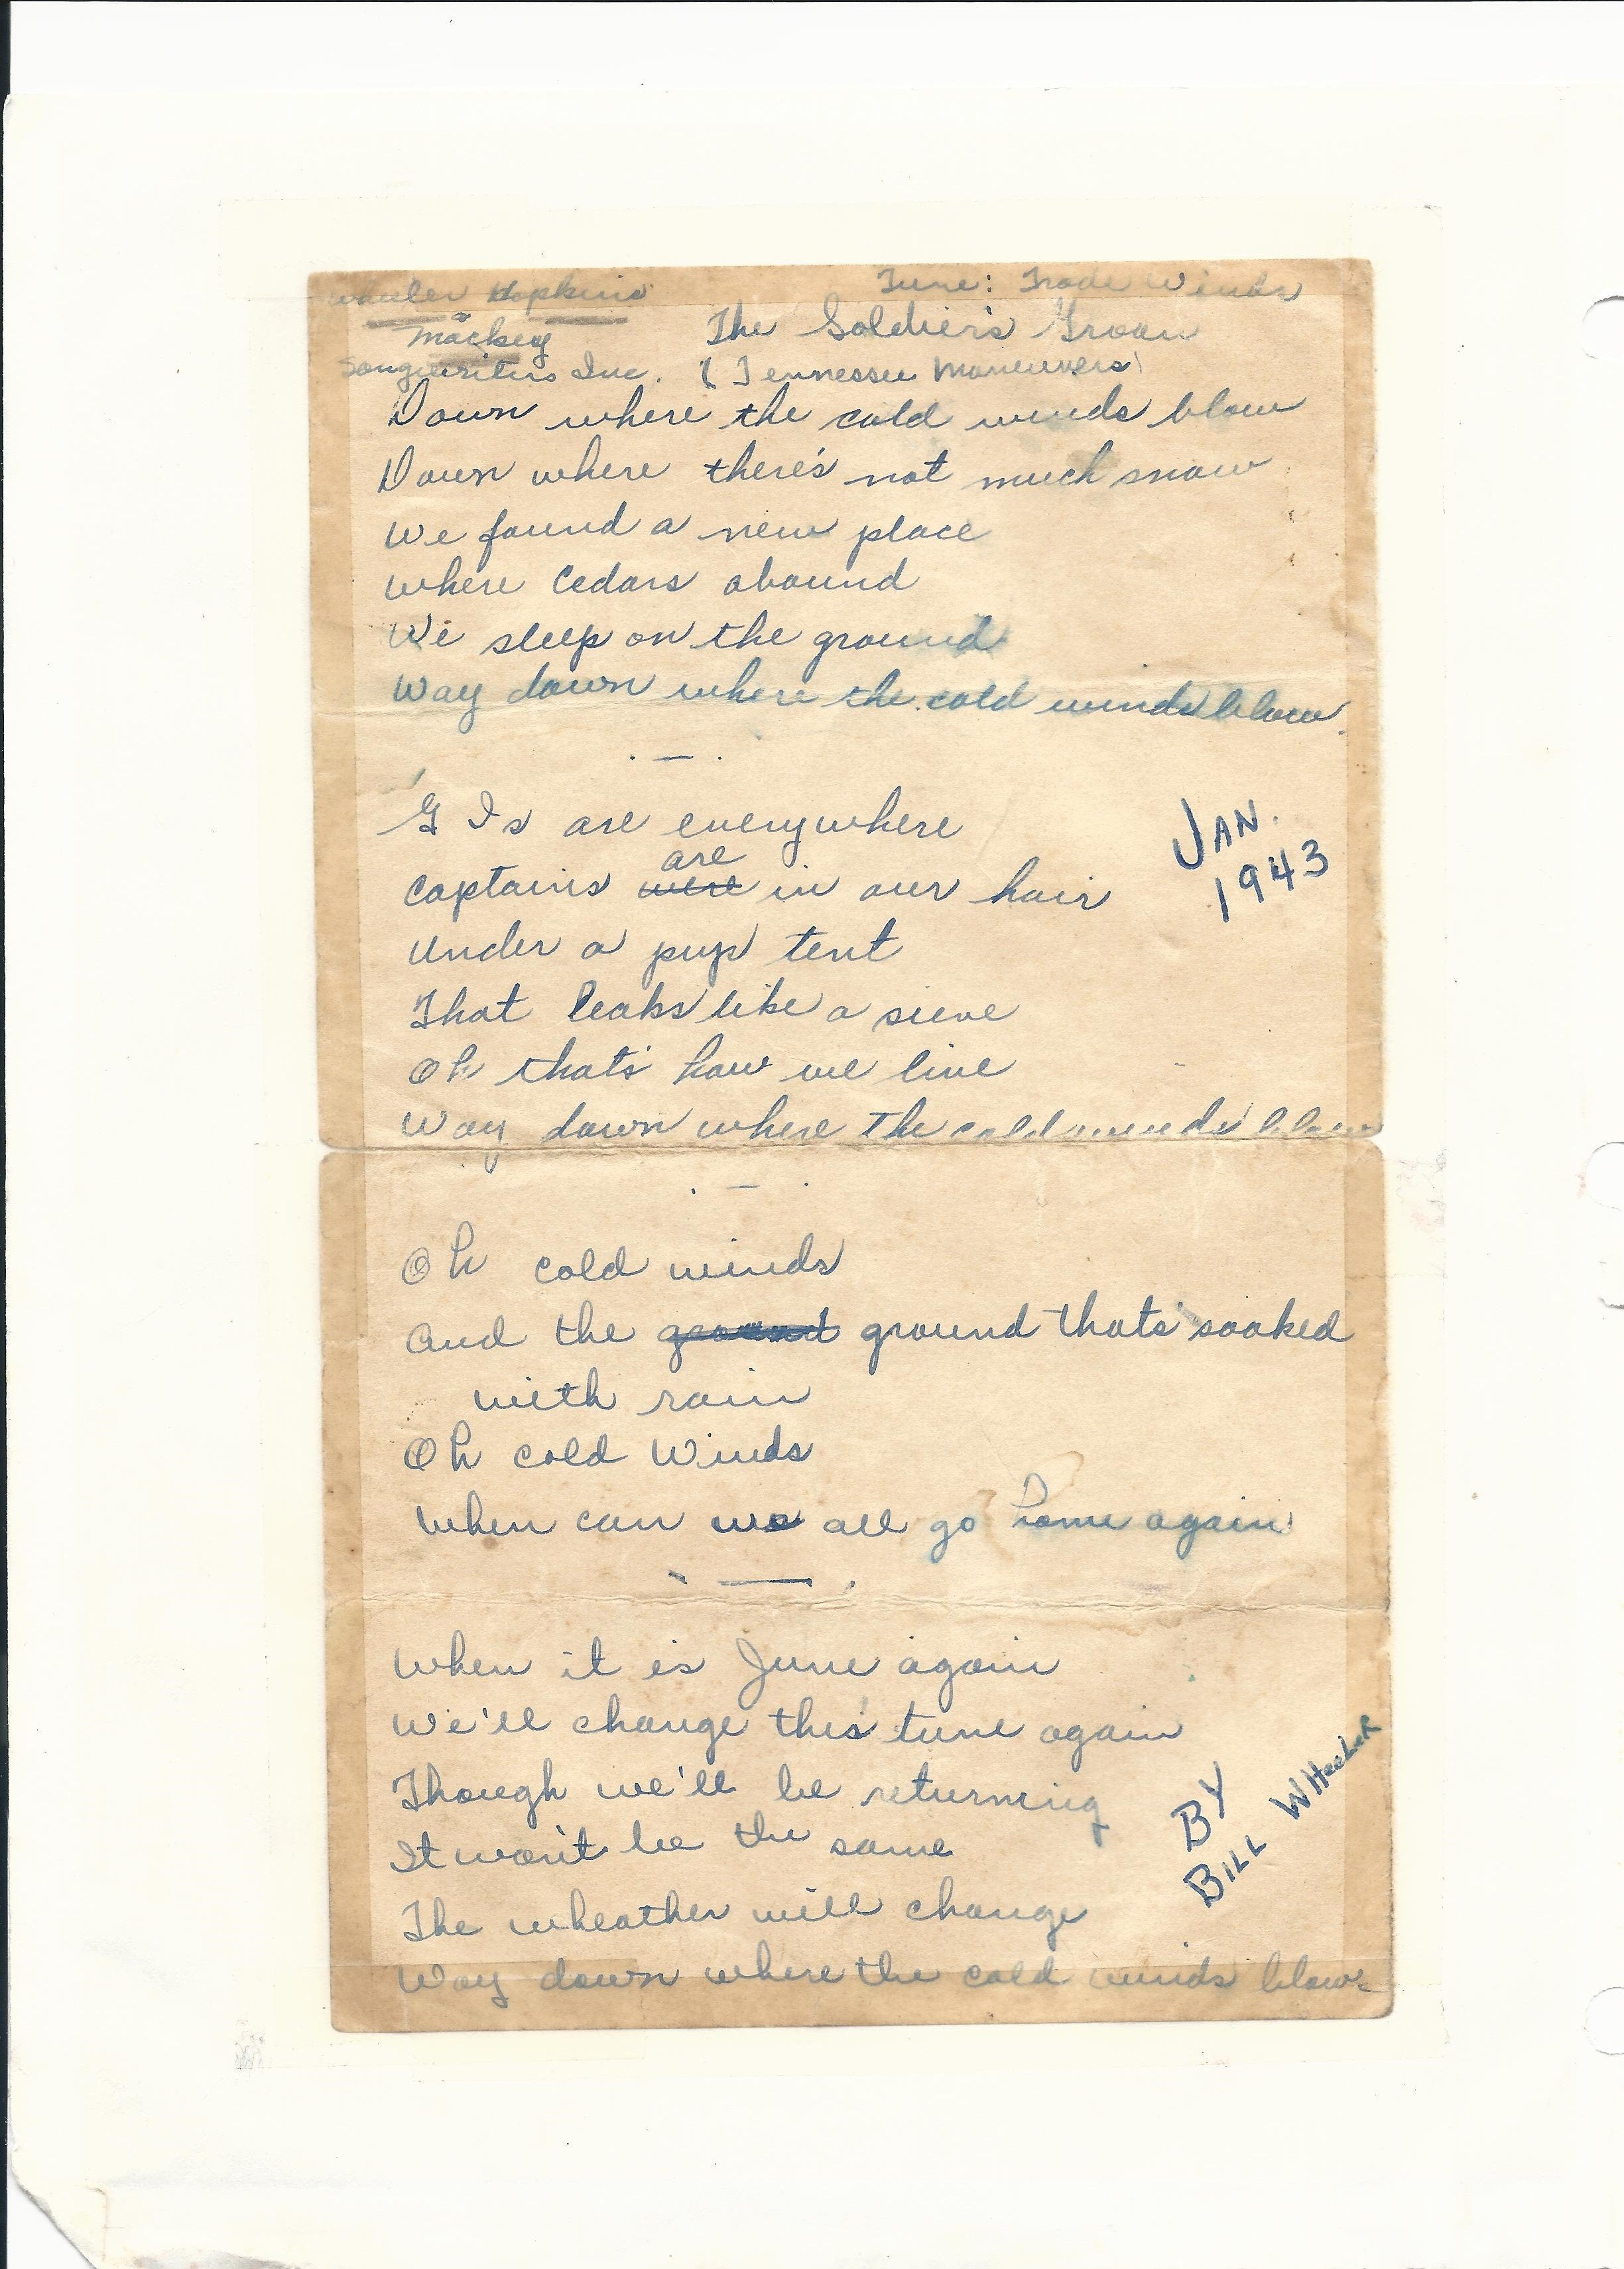 Wheeler Hopkins
Tune: Trade Winds
& Mackey
The Soldier's Groan
Songwriters Inc. (Tennessee Maneuvers)
Down where the cold winds blow
Down where there's not much snow
We found a new place
where Cedars abound
We sleep on the ground
Way down where the cold winds blow.
. — .
G Is are everywhere
JAN.
1943
are
Captains were in our hair
Under a pup tent
That leaks like a sieve
Oh that's how we live
Way down where the cold winds blow
. — .
Oh cold winds
And the ground ground thats soaked
with rain
Oh cold Winds
When can we all go home again
. — .
When it is June again
We'll change this tune again
Though we'll be returning
It won't be the same
BY
BILL WHeeLeR
The wheather will change
Way down where the cold winds blow.